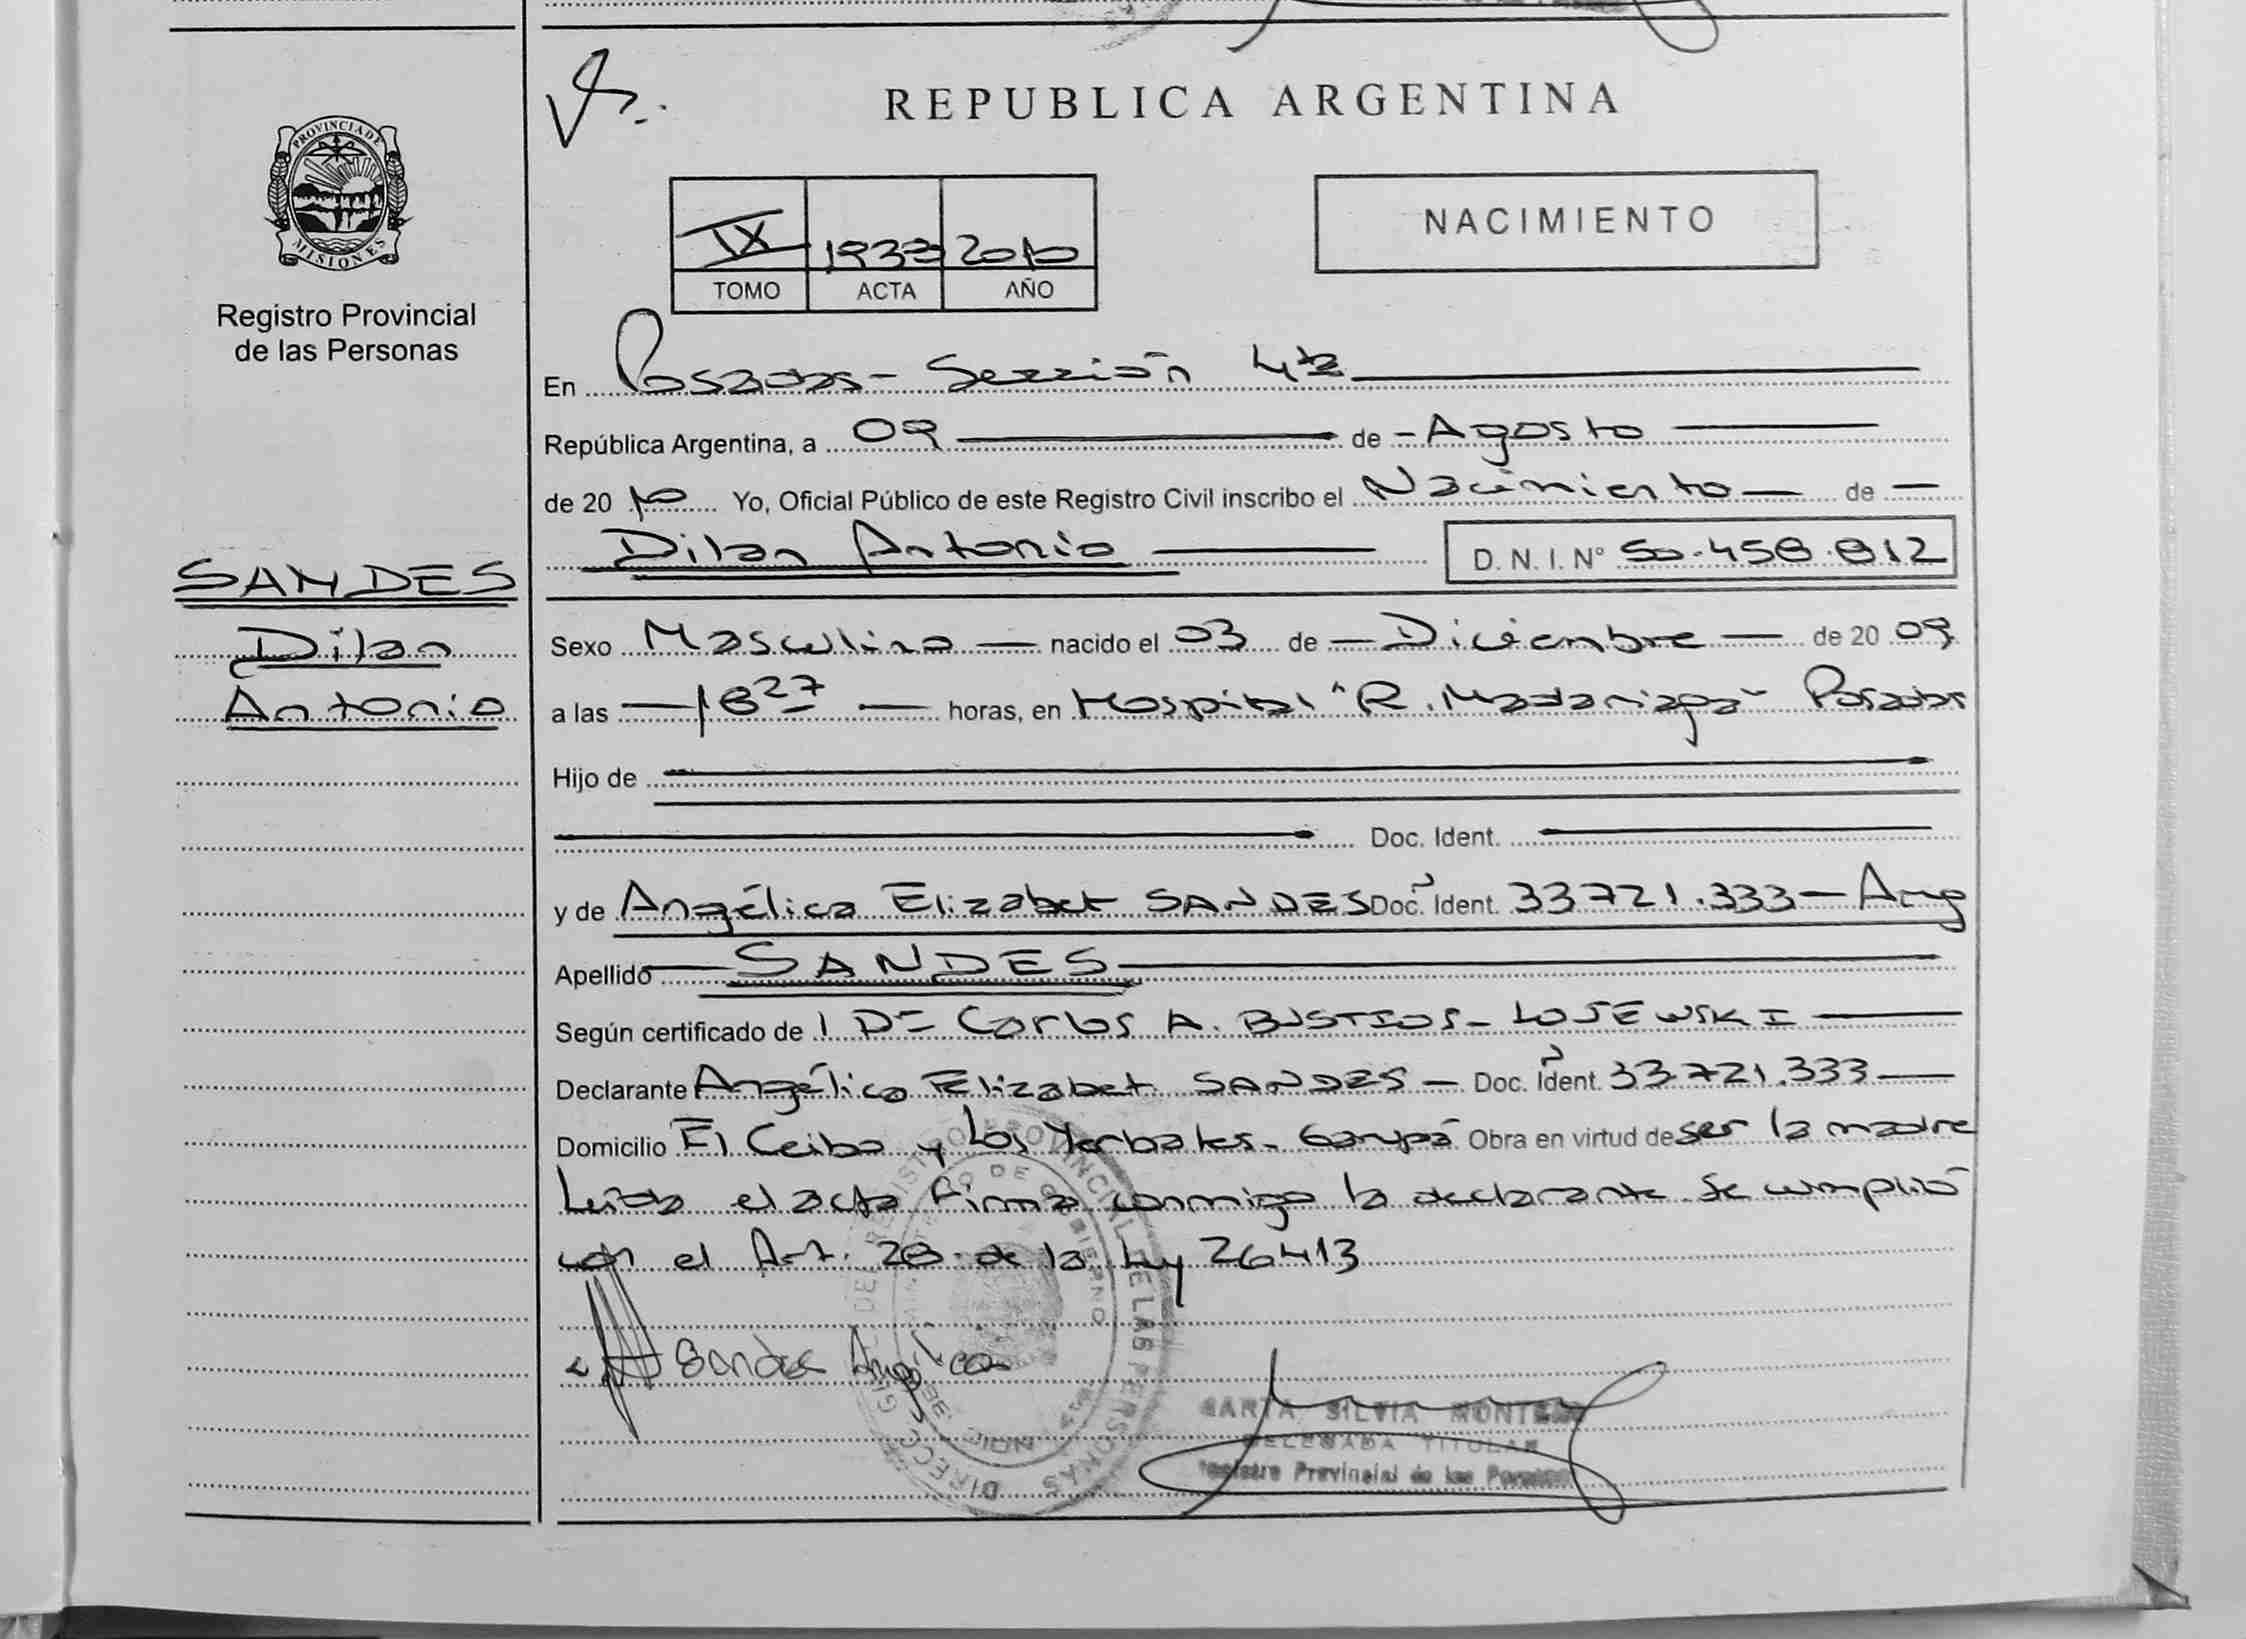 REPUBLICA ARGENTINA
PROVINCIA DE MISIONES
Registro Provincial
de las Personas
IX 1933 2010
TOMO ACTA AÑO
NACIMIENTO
En Posadas - Sección 4ta
República Argentina, a 09 de - Agosto
de 20 10 Yo, Oficial Público de este Registro Civil inscribo el Nacimiento de
Dilan Antonio D. N. I. N° 50.458.812
SANDES
Dilan
Antonio
Sexo Masculino nacido el 03 de Diciembre de 20 09
a las 18 27 horas, en Hospital "R. Madariaga" Posadas
Hijo de
Doc. Ident.
y de Angélica Elizabet SANDES Doc. Ident. 33721.333 - Arg
Apellido SANDES
Según certificado de l Dr Carlos A. BUSTIOS - LOJEWSKI
Declarante Angélica Elizabet SANDES - Doc. Ident. 33.721.333
Domicilio El Ceibo y Los Yerbales - Garupá Obra en virtud de ser la madre
Leida el acta firma conmigo la declarante. Se cumplió
con el Art. 28 de la Ley 26413
Sandes Angélica
DIRECC. REGISTRO PROVINCIAL DE LAS PERSONAS
DE GOBIERNO
SILVIA MONTE
DELEGADA TITULAR
Registro Provincial de las Personas